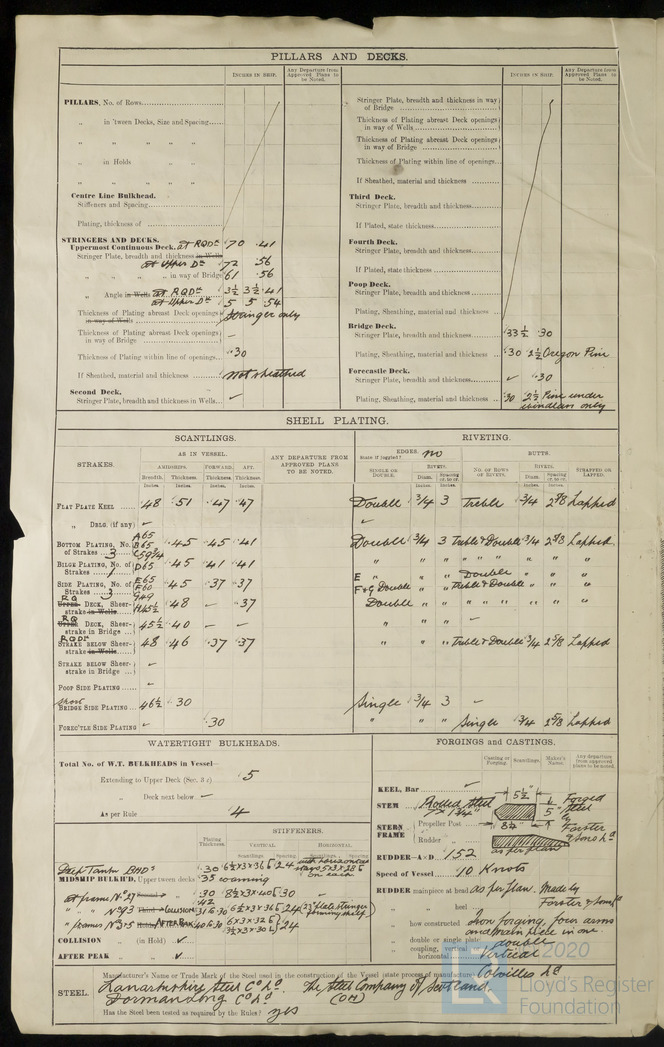 PILLARS AND DECKS.
INCHES IN SHIP.
Any Departure from Approved Plans to be Noted.
INCHES IN SHIP.
Any Departure from Approved Plans to be Noted.
PILLARS, No. of Rows
„ in 'tween Decks, Size and Spacing
„ „ „ „
„ in Holds „ „
„ „ „ „
Centre Line Bulkhead.
Stiffeners and Spacing
Plating, thickness of
STRINGERS AND DECKS.
Uppermost Continuous Deck. at RQDk 70 .41
Stringer Plate, breadth and thickness in Wells
at Upper Dk 72 .56
„ „ „ „ in way of Bridge 61 .56
„ Angle in Wells at RQDk 3½ 3½ .41
at Upper Dk 5 5 .54
Thickness of Plating abreast Deck openings in way of Wells Stringer only
Thickness of Plating abreast Deck openings in way of Bridge –
Thickness of Plating within line of openings .30
If Sheathed, material and thickness not sheathed
Second Deck.
Stringer Plate, breadth and thickness in Wells
Stringer Plate, breadth and thickness in way of Bridge
Thickness of Plating abreast Deck openings in way of Wells
Thickness of Plating abreast Deck openings in way of Bridge
Thickness of Plating within line of openings
If Sheathed, material and thickness
Third Deck.
Stringer Plate, breadth and thickness
If Plated, state thickness
Fourth Deck.
Stringer Plate, breadth and thickness
If Plated, state thickness
Poop Deck.
Stringer Plate, breadth and thickness
Plating, Sheathing, material and thickness
Bridge Deck.
Stringer Plate, breadth and thickness 33½ .30
Plating, Sheathing, material and thickness .30 2½ Oregon Pine
Forecastle Deck.
Stringer Plate, breadth and thickness .30
Plating, Sheathing, material and thickness .30 2½ Pine under
windlass only
SHELL PLATING.
SCANTLINGS.
RIVETING.
STRAKES.
AS IN VESSEL.
ANY DEPARTURE FROM APPROVED PLANS TO BE NOTED.
EDGES. no
State if joggled?
BUTTS.
AMIDSHIPS. FORWARD. AFT.
Breadth. Thickness. Thickness. Thickness.
Inches. Inches. Inches. Inches.
SINGLE OR DOUBLE.
RIVETS.
Diam. Spacing cr. to cr.
No. OF ROWS OF RIVETS.
RIVETS.
Diam. Spacing cr. to cr.
STRAPPED OR LAPPED.
FLAT PLATE KEEL 48 .51 .47 .47 Double ¾ 3 Treble ¾ 2⅝ Lapped
„ DBLG. (if any)
BOTTOM PLATING, No. of Strakes 3 A65 B65 C59¾ .45 .45 .41 Double ¾ 3 Treble & Double ¾ 2⅝ Lapped
BILGE PLATING, No. of Strakes 1 D65 .45 .41 .41 „ „ „ „
SIDE PLATING, No. of Strakes 3 E65 F60 G49 .45 .37 .37 E „ „ „ Double
F & G Double „ „ Treble & Double „ „ „
RQ UPPER DECK, Sheerstrake in Wells H45½ .48 – .37 Double „ „ „ „ „ „
RQ UPPER DECK, Sheerstrake in Bridge 45½ .40 – – „ „ „ –
RQDk STRAKE BELOW Sheerstrake in Wells 48 .46 .37 .37 „ „ „ Treble & Double ¾ 2⅝ Lapped
STRAKE BELOW Sheerstrake in Bridge –
POOP SIDE PLATING –
Short BRIDGE SIDE PLATING 46½ .30 Single ¾ 3 –
FOREC'TLE SIDE PLATING – .30 „ „ „ Single ¾ 2⅝ Lapped
WATERTIGHT BULKHEADS.
Total No. of W.T. BULKHEADS in Vessel
Extending to Upper Deck (Sec. 3 c) 5
„ Deck next below –
As per Rule 4
STIFFENERS.
Plating Thickness
VERTICAL
HORIZONTAL
Scantlings. Spacing. Scantlings. Spacing.
Deep Tank BHDs .30 24 with horizontal
stays
on each
MIDSHIP BULKH'D, Upper 'tween decks .35 coaming
at frame No 27 .30 8½ x 3 x .40 30 –
.42
„ „ No 93 COLLISION 24 plate stringer
„ frame No 5 AFTER PEAK 24
COLLISION „ (in Hold)
AFTER PEAK „
FORGINGS and CASTINGS.
Casting or Forging.
Scantlings.
Maker's Name.
Any departure from approved plans to be noted.
KEEL, Bar –
STEM Rolled Steel
7 x 1¾"
5½"
5"
8¼"
Forged Steel
by
Forster
& Sons Ld
STERN FRAME
Propeller Post
Rudder „
as per plan
RUDDER—A×D 152
Speed of Vessel 10 Knots
RUDDER mainpiece at head as per plan. Made by
„ „ heel Forster & Sons Ld
„ how constructed Iron forging, four arms
and main piece in one.
„ double or single plate double
„ coupling, vertical or horizontal Vertical
STEEL. Manufacturer's Name or Trade Mark of the Steel used in the construction of the Vessel (state process of manufacture) Colvilles Ld
Lanarkshire Steel Co Ld. The Steel Company of Scotland.
Dorman Long Co Ld (OH)
Has the Steel been tested as required by the Rules? yes
© 2020
LR
Lloyd's Register
Foundation